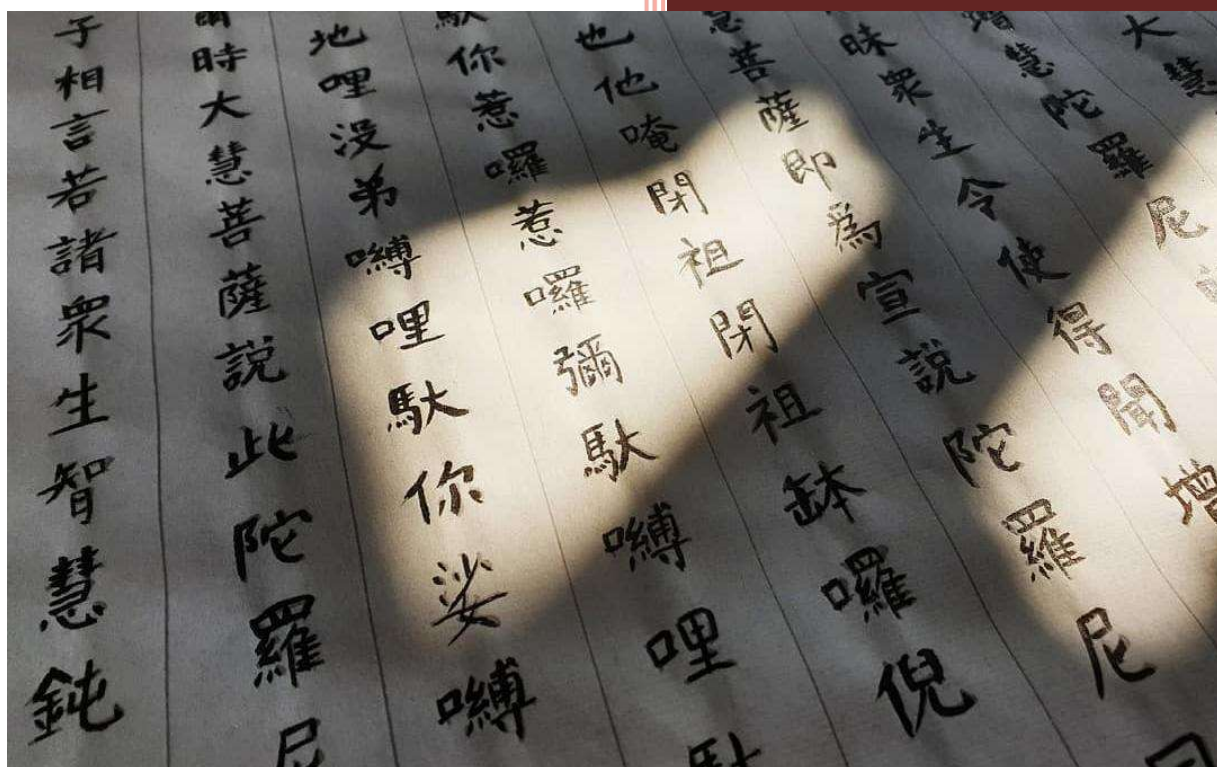 大慧
增慧陀羅尼
昧衆生令使得聞增
慧菩薩即爲宣説陀羅尼
也他唵閉祖閉祖鉢囉倪
馱你惹囉惹囉彌馱嚩哩馱
地哩没弟嚩哩馱你娑嚩
爾時大慧菩薩説此陀羅尼
子相言若諸衆生智慧鈍